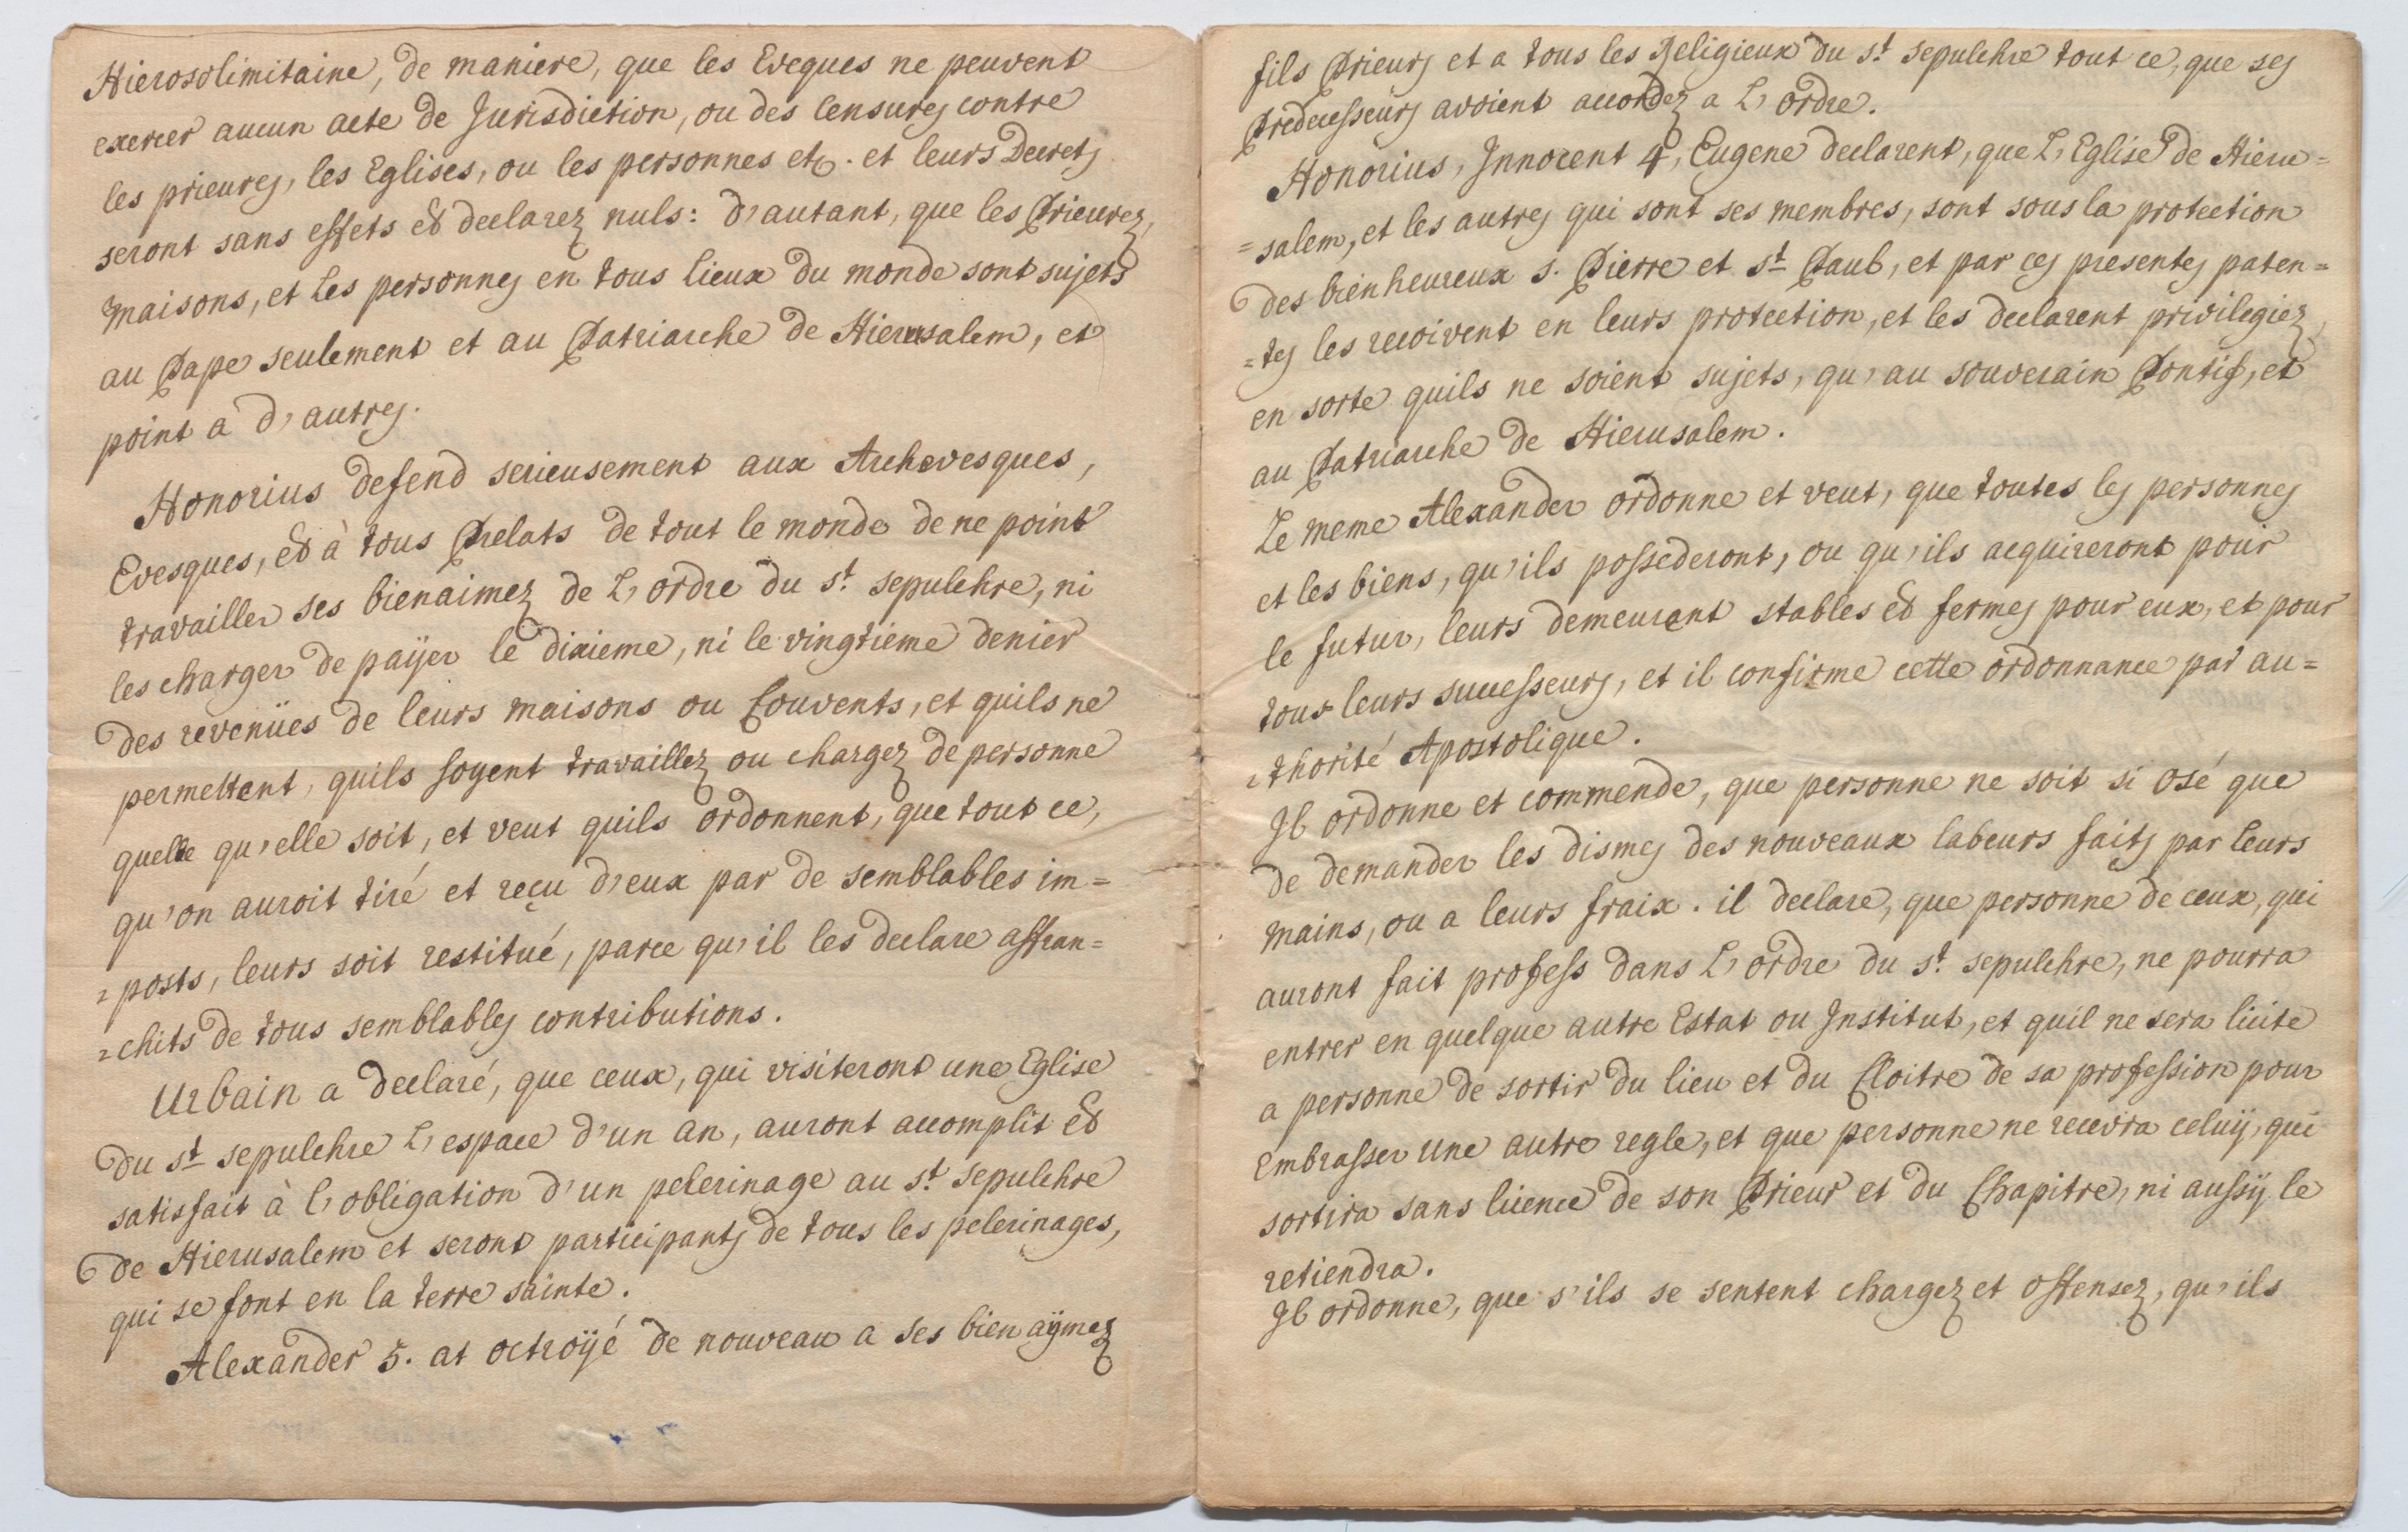 Hierosolimitaine, de maniere, que les Eveques ne peuvent
exercer aucun acte de Jurisdiction, ou des Censures contre
les prieures, les Eglises, ou les personnes etc. et leurs Decrets
seront sans effets et declarez nuls: d'autant, que les Prieurez,
maisons, et les personnes en tous lieux du monde sont sujets
au Pape seulement et au Patriarche de Hierusalem, et
point a d'autres.
Honorius defend serieusement aux Archevesques,
Evesques, et à tous Prelats de tout le monde de ne point
travailler ses bienaimez de L'ordre du st. sepulchre, ni
les charger de païjer le dixieme, ni le vingtieme denier
des revenües de leurs maisons ou Couvents, et quils ne
permettent, quils soyent travaillez ou chargez de personne
quelle qu'elle soit, et veut quils ordonnent, que tout ce,
qu'on auroit tiré et reçu d'eux par de semblables im=
=posts, leurs soit restitué, parce qu'il les declare affran=
=chits de tous semblables contributions.
Urbain a declaré, que ceux, qui visiteront une Eglise
du st sepulchre L'espace d'un an, auront accomplit et
satisfait à l'obligation d'un pelerinage au st. sepulchre
de Hierusalem et seront participants de tous les pelerinages,
qui se font en la terre sainte.
Alexander 5. at octroÿé de nouveau a ses bien aÿmez
fils Prieurs et a tous les Religieux du st. sepulchre tout ce, que ses
Predecesseurs avoient accordez a L'ordre.
Honorius, Innocent 4, Eugene declarent, que L'Eglise de Hieru=
=salem, et les autres qui sont ses membres, sont sous la protection
des bienheureux s. Pierre et st Paul, et par ces presentes paten=
=tes les recoivent en leurs protection, et les declarent privilegiez,
en sorte quils ne soient sujets, qu'au souverain Pontif, et
au Patriarche de Hierusalem.
Le meme Alexander ordonne et veut, que toutes les personnes
et les biens, qu'ils possederont, ou qu'ils acquireront pour
le futur, leurs demeurent stables et fermes pour eux, et pour
tous leurs successeurs, et il confirme cette ordonnance par au=
=thorité Apostolique.
Il ordonne et commende, que personne ne soit si osé que
de demander les dismes des nouveaux labeurs faits par leurs
mains, ou a leurs fraix. il declare, que personne de ceux, qui
auront fait profess dans L'ordre du st. sepulchre, ne pourra
entrer en quelque autre Estat ou Institut, et quil ne sera licite
a personne de sortir du lieu et du Cloitre de sa profession pour
Embrasser une autre regle, et que personne ne recevra celuÿ, qui
sortira sans licence de son Prieur et du Chapitre, ni aussÿ le
retiendra.
Il ordonne, que s'ils se sentent chargez et offensez, qu'ils